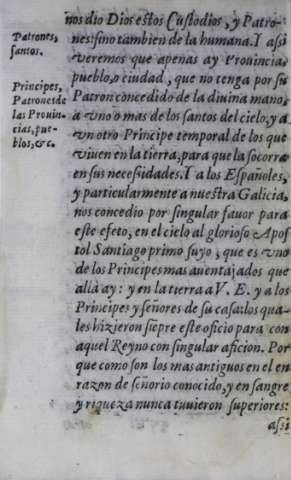 nos dio Dios estos Custodios, y Patro-
Patrones,
santos.
nes: sino tambien de la humana. I assi
veremos que apenas ay Prouincia,
pueblo, o ciudad, que no tenga por su
Principes,
Patrones de
las Prouin-
cias, pue-
blos, &c.
Patron concedido de la diuina mano,
a vno o mas de los santos del cielo, y a
vn otro Principe temporal de los que
viuen en la tierra, para que la socorra
en sus necessidades. I a los Españoles,
y particularmente a nuestra Galicia,
nos concedio por singular fauor para
este efeto, en el cielo al glorioso Apos
tol Santiago primo suyo, que es vno
de los Principes mas auentajados que
allà ay: y en la tierra a V. E. y a los
Principes y señores de su casa: los qua-
les hizieron siẽpre este oficio para con
aquel Reyno con singular aficion. Por
que como son los mas antiguos en el en
razon de señorio conocido, y en sangre
y riqueza nunca tuuieron superiores:
assi